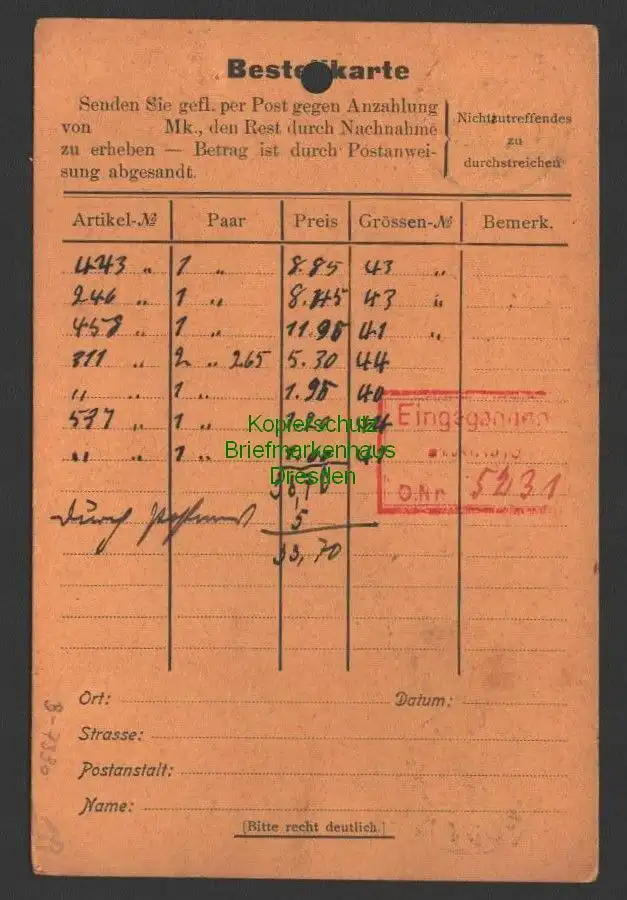 Bestellkarte
Senden Sie gefl. per Post gegen Anzahlung
von Mk., den Rest durch Nachnahme
zu erheben — Betrag ist durch Postanwei-
sung abgesandt.
Nichtzutreffendes
zu
durchstreichen
Artikel-№ Paar Preis Grössen-№ Bemerk.
443 „ 1 „ 8.85 43 „
246 „ 1 „ 8.45 43 „
458 „ 1 „ 11.95 41 „
311 „ 2 „ 265 5.30 44
„ 1 „ 1.95 40
537 „ 1 „ 44
„ „ 1 „
Eingegangen
O.Nr. 5231
Kopierschutz
Briefmarkenhaus
Dresden
durch
5
33,70
Ort: Datum:
Strasse:
Postanstalt:
Name:
(Bitte recht deutlich.)